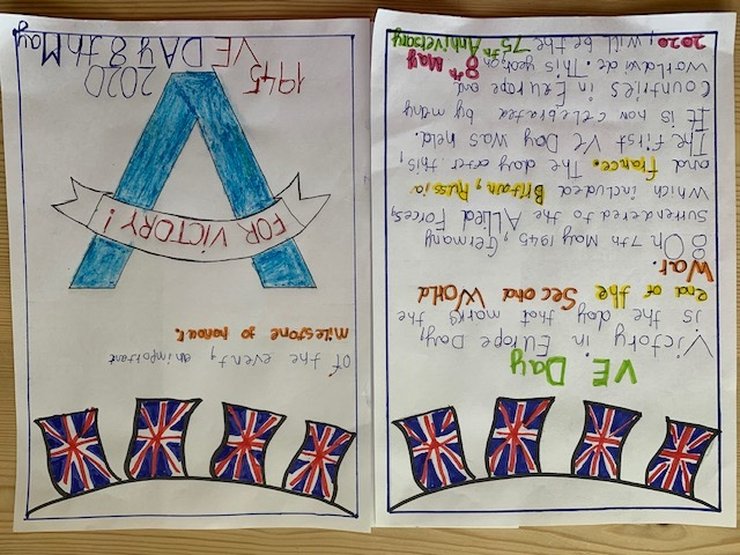 VE Day
Victory in Europe Day,
is the day that marks the
end of the Second World
War.
8 On 7th May 1945, Germany
surrendered to the Allied Forces,
which included Britain, Russia
and France. The day after this,
The first VE Day was held.
It is now celebrated by many
Countries in Europe and
worldwide. This year, on 8th May
2020, will be the 75th Anniversary
of the event, an important
milestone to honour.
FOR VICTORY!
1945 2020
VE DAY 8th May